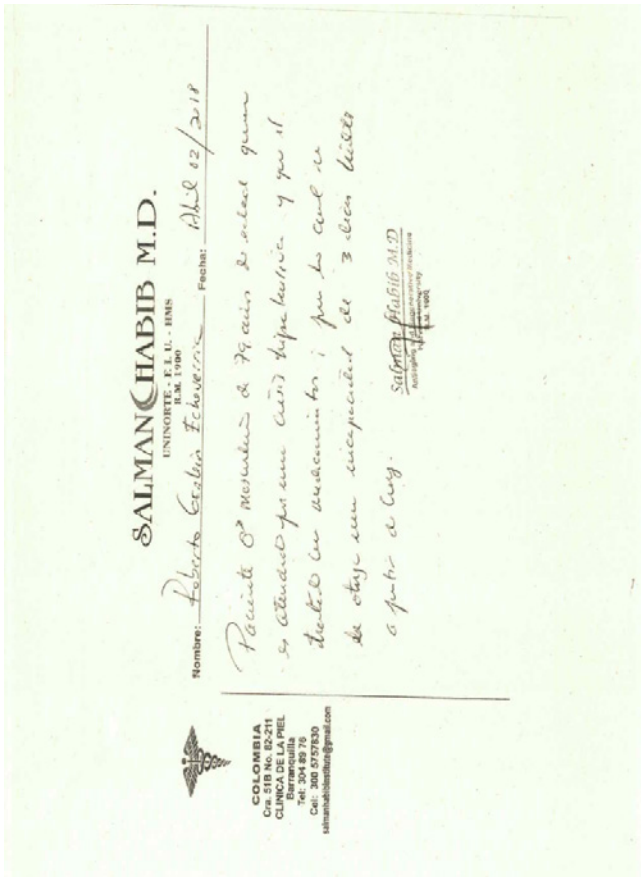 SALMAN HABIB M.D.
UNINORTE - F. I. U. - HMS
R.M. 1900
Nombre: Roberto Echeverria Fecha: Abril 02/2018
Paciente masculino de 79 años de edad quien
es atendido por una crisis hipertensiva y que es
tratado con medicamentos; por lo cual se
le otorga una incapacidad de 3 dias habiles
a partir de hoy.
Salman Habib M.D
Antiaging & Regenerative Medicine
University
R.M. 1900
COLOMBIA
Cra. 51B No. 82-211
CLINICA DE LA PIEL
Barranquilla
Tel: 304 89 76
Cel: 300 5757830
salmanhabibinstitute@gmail.com